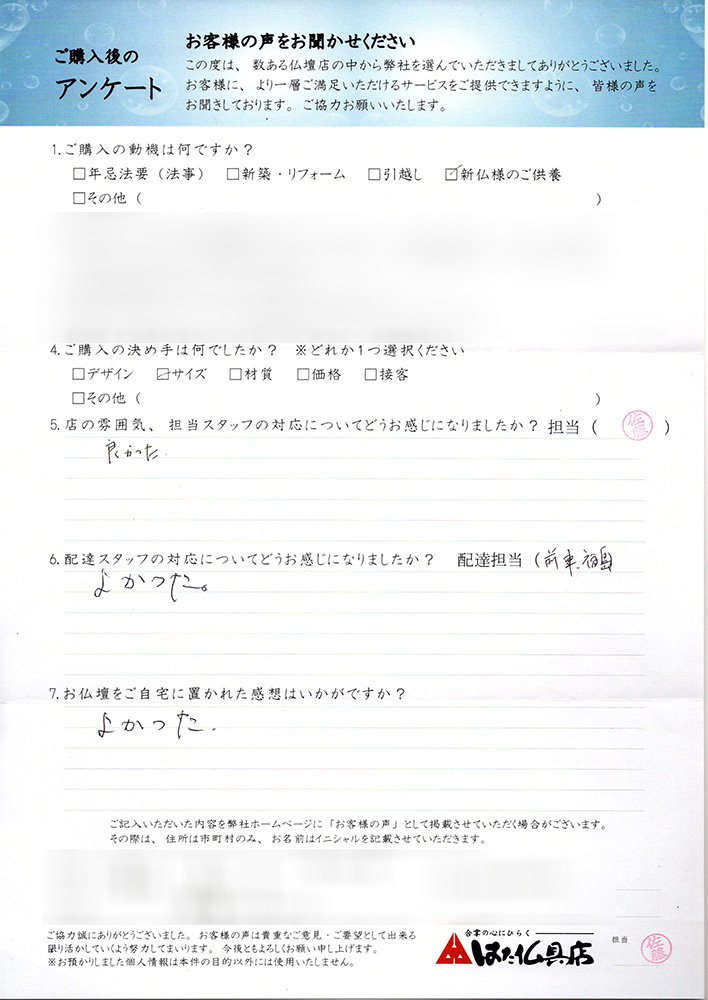 ご購入後の
アンケート
お客様の声をお聞かせください
この度は、数ある仏壇店の中から弊社を選んでいただきましてありがとうございました。
お客様に、より一層ご満足いただけるサービスをご提供できますように、皆様の声を
お聞きしております。ご協力お願いいたします。
1.ご購入の動機は何ですか?
□年忌法要(法事) □新築・リフォーム □引越し ☑新仏様のご供養
□その他( )
4.ご購入の決め手は何でしたか? ※どれか1つ選択ください
□デザイン ☑サイズ □材質 □価格 □接客
□その他( )
5.店の雰囲気、担当スタッフの対応についてどうお感じになりましたか?担当( 佐藤 )
良かった
6.配達スタッフの対応についてどうお感じになりましたか? 配達担当(
よかった。
7.お仏壇をご自宅に置かれた感想はいかがですか?
よかった.
ご記入いただいた内容を弊社ホームページに「お客様の声」として掲載させていただく場合がございます。
その際は、住所は市町村のみ、お名前はイニシャルを記載させていただきます。
ご協力誠にありがとうございました。お客様の声は貴重なご意見・ご要望として出来る
限り活かしていくよう努力してまいります。今後ともよろしくお願い申し上げます。
※お預かりしました個人情報は本件の目的以外には使用いたしません。
合掌の心にひらく
はた仏具店
担当 佐藤